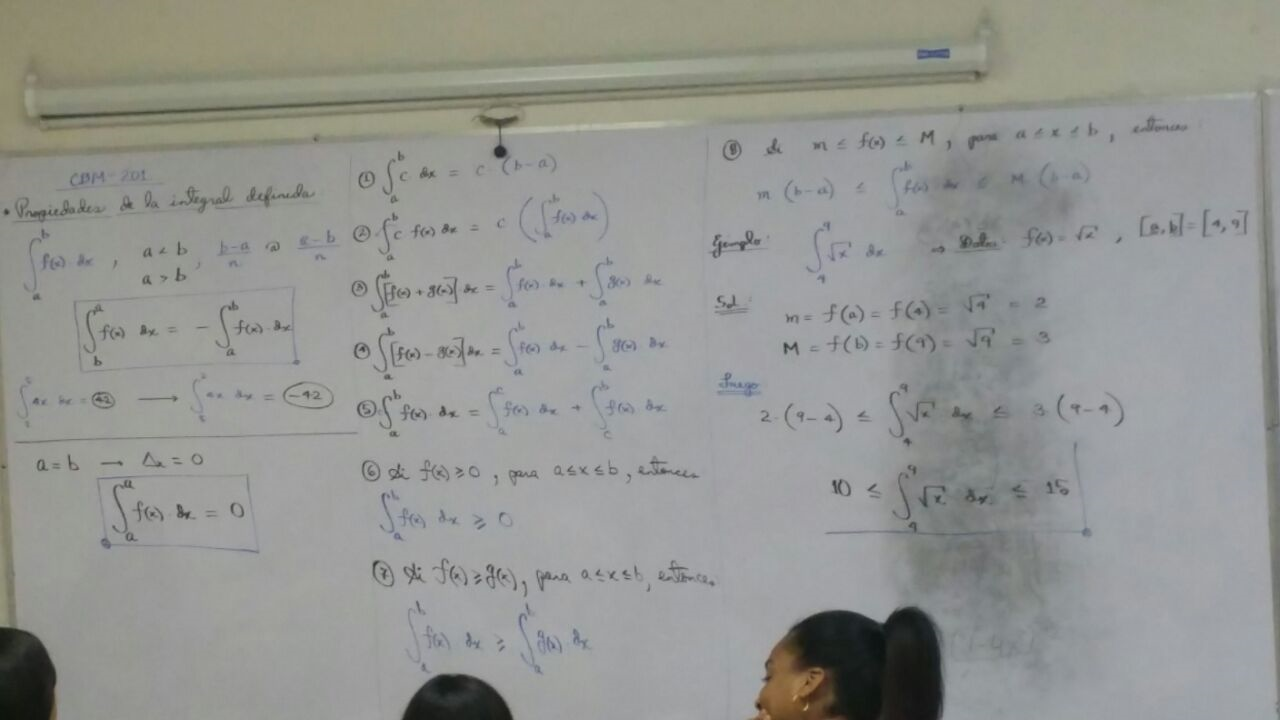 CBM-201
• Propiedades de la integral definida
∫_a^b f(x) dx , a < b , (b-a)/n ② (a-b)/n
a > b
∫_b^a f(x) dx = - ∫_a^b f(x) dx
ax dx = 42 → ax dx = -42
a = b → Δx = 0
∫_a^a f(x) dx = 0
① ∫_a^b c dx = c (b-a)
② ∫_a^b c f(x) dx = c (∫_a^b f(x) dx)
③ ∫_a^b [f(x) + g(x)] dx = ∫_a^b f(x) dx + ∫_a^b g(x) dx
④ ∫_a^b [f(x) - g(x)] dx = ∫_a^b f(x) dx - ∫_a^b g(x) dx
⑤ ∫_a^b f(x) dx = ∫_a^c f(x) dx + ∫_c^b f(x) dx
⑥ Si f(x) ≥ 0 , para a ≤ x ≤ b , entonces
∫_a^b f(x) dx ≥ 0
⑦ Si f(x) ≥ g(x), para a ≤ x ≤ b, entonces
∫_a^b f(x) dx ≥ ∫_a^b g(x) dx
⑧ Si m ≤ f(x) ≤ M , para a ≤ x ≤ b , entonces
m (b-a) ≤ ∫_a^b f(x) dx ≤ M (b-a)
Ejemplo: ∫_4^9 √x dx ⇒ Datos: f(x) = √x , [a,b] = [4,9]
Sol:
m = f(a) = f(4) = √4 = 2
M = f(b) = f(9) = √9 = 3
Luego
2·(9-4) ≤ ∫_4^9 √x dx ≤ 3·(9-4)
10 ≤ ∫_4^9 √x dx ≤ 15